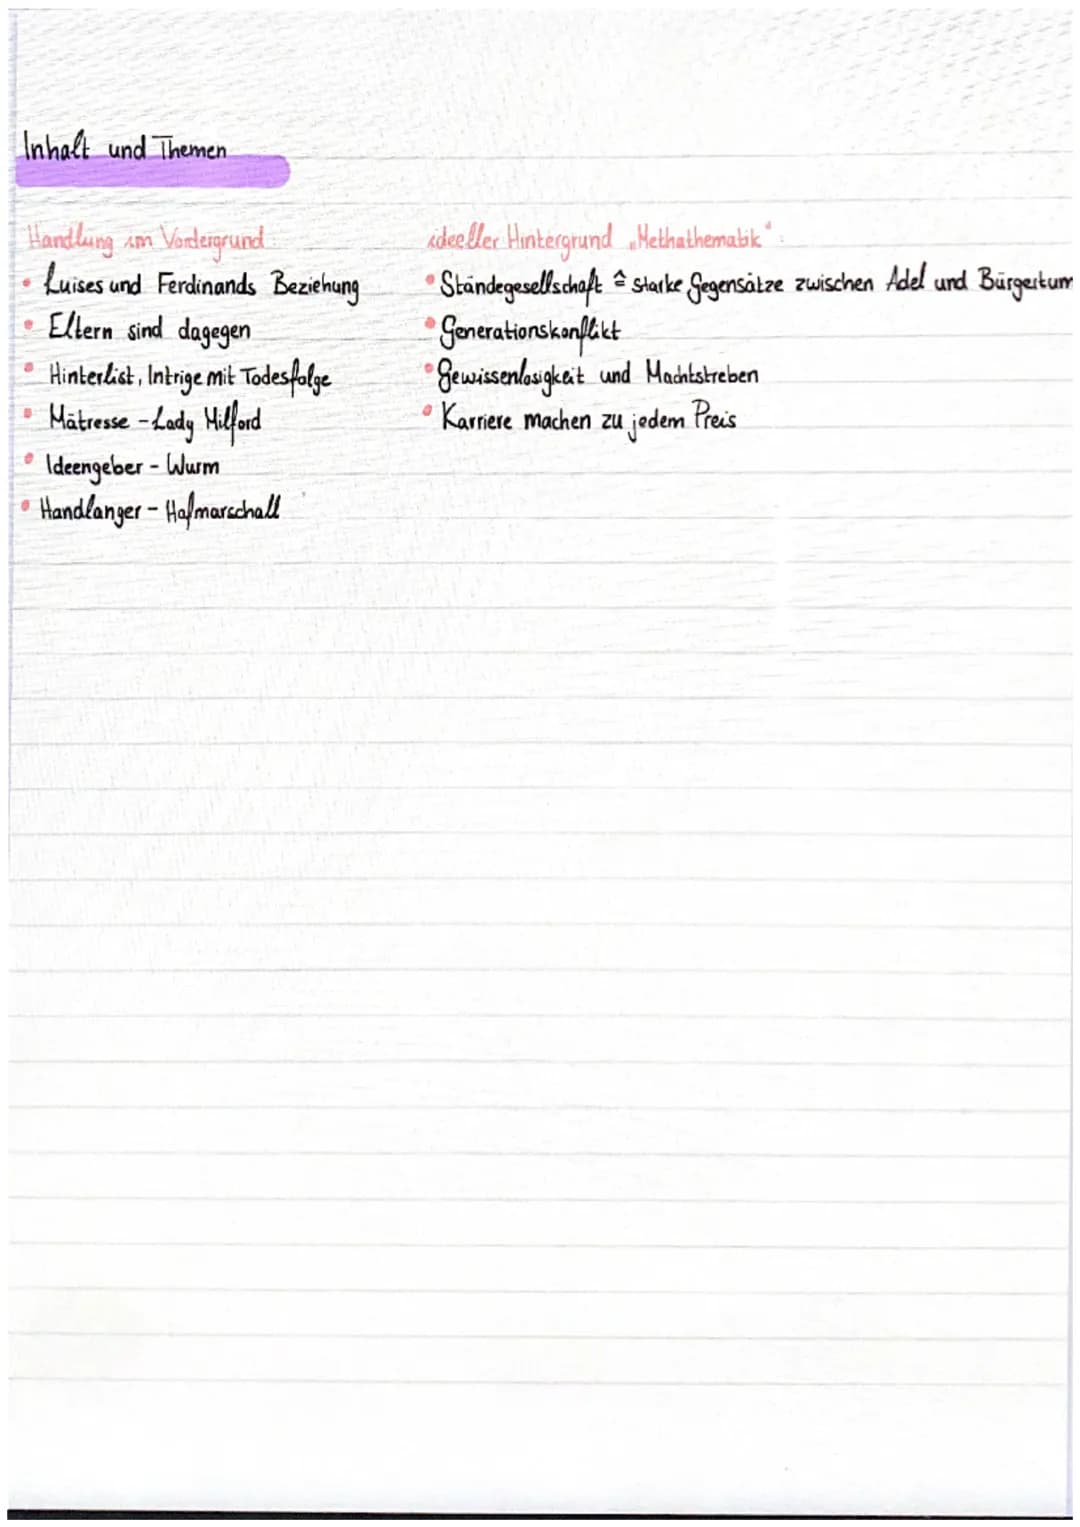 Inhalt und Themen
Handlung im Vordergrund:
• Luises und Ferdinands Beziehung
• Eltern sind dagegen
• Hinterlist, Intrige mit Todesfolge
• Mätresse - Lady Milford
• Ideengeber - Wurm
• Handlanger - Hofmarschall
ideeller Hintergrund „Methathematik":
• Ständegesellschaft ≙ starke Gegensätze zwischen Adel und Bürgertum
• Generationskonflikt
• Gewissenlosigkeit und Machtstreben
• Karriere machen zu jedem Preis